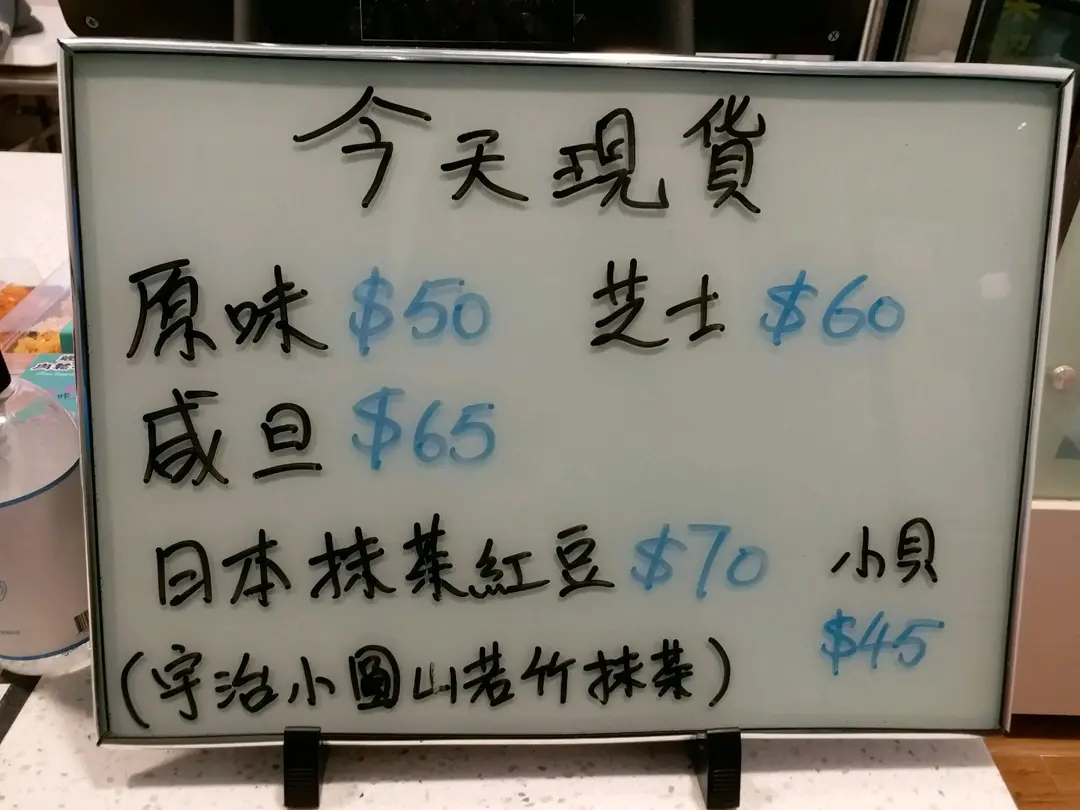 今天現貨
原味 $50 芝士 $60
咸旦 $65
日本抹茶紅豆 $70 小貝
$45
(宇治小圓山若竹抹茶)